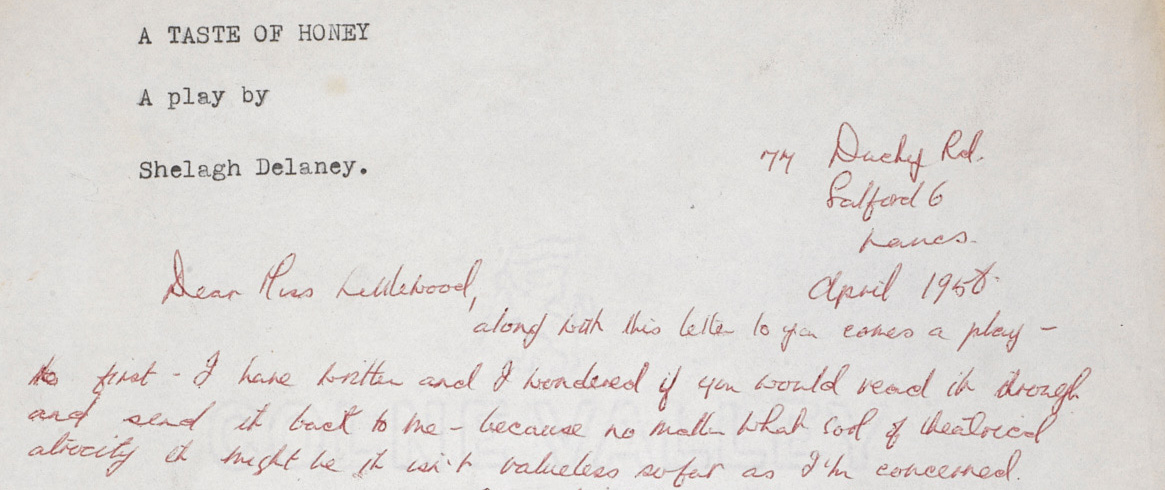 A TASTE OF HONEY
A play by
Shelagh Delaney.
77 Duchy Rd.
Salford 6
Lancs.
April 1958.
Dear Miss Littlewood,
along with this letter to you comes a play -
the first - I have written and I wondered if you would read it through
and send it back to me - because no matter what sort of theatrical
atrocity it might be it isn't valueless so far as I'm concerned.